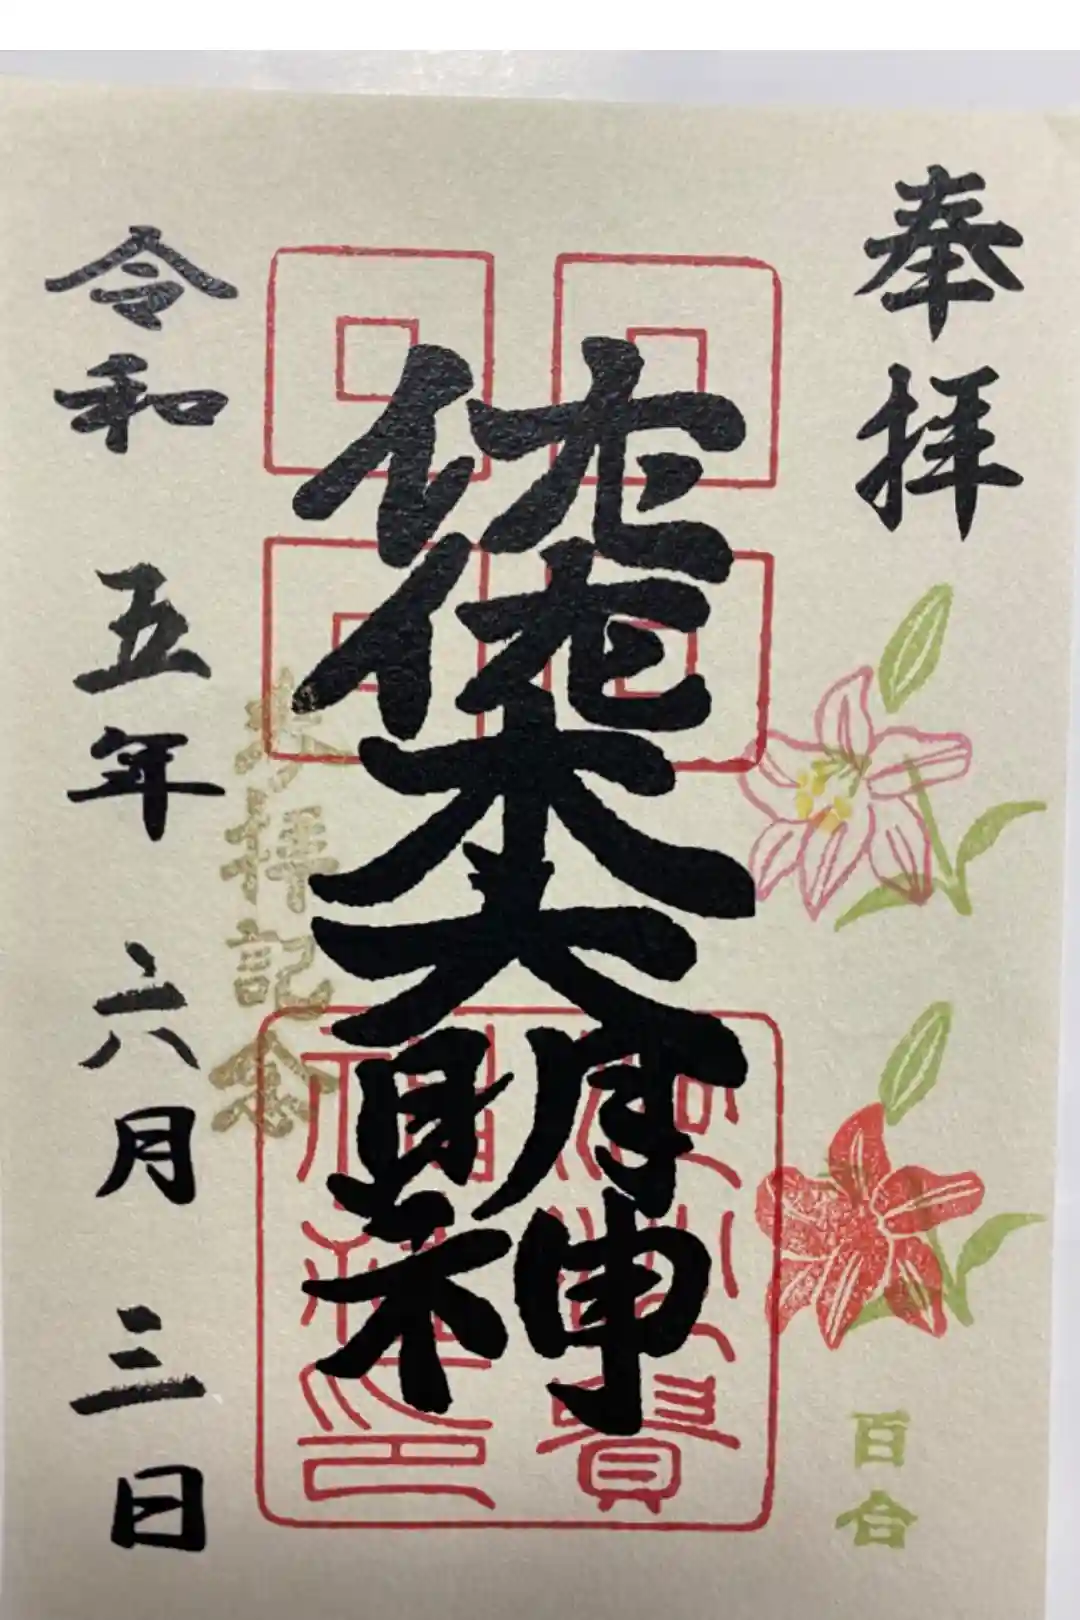 奉拝
百合
佐佐木大明神
参拝記念
令和五年六月三日